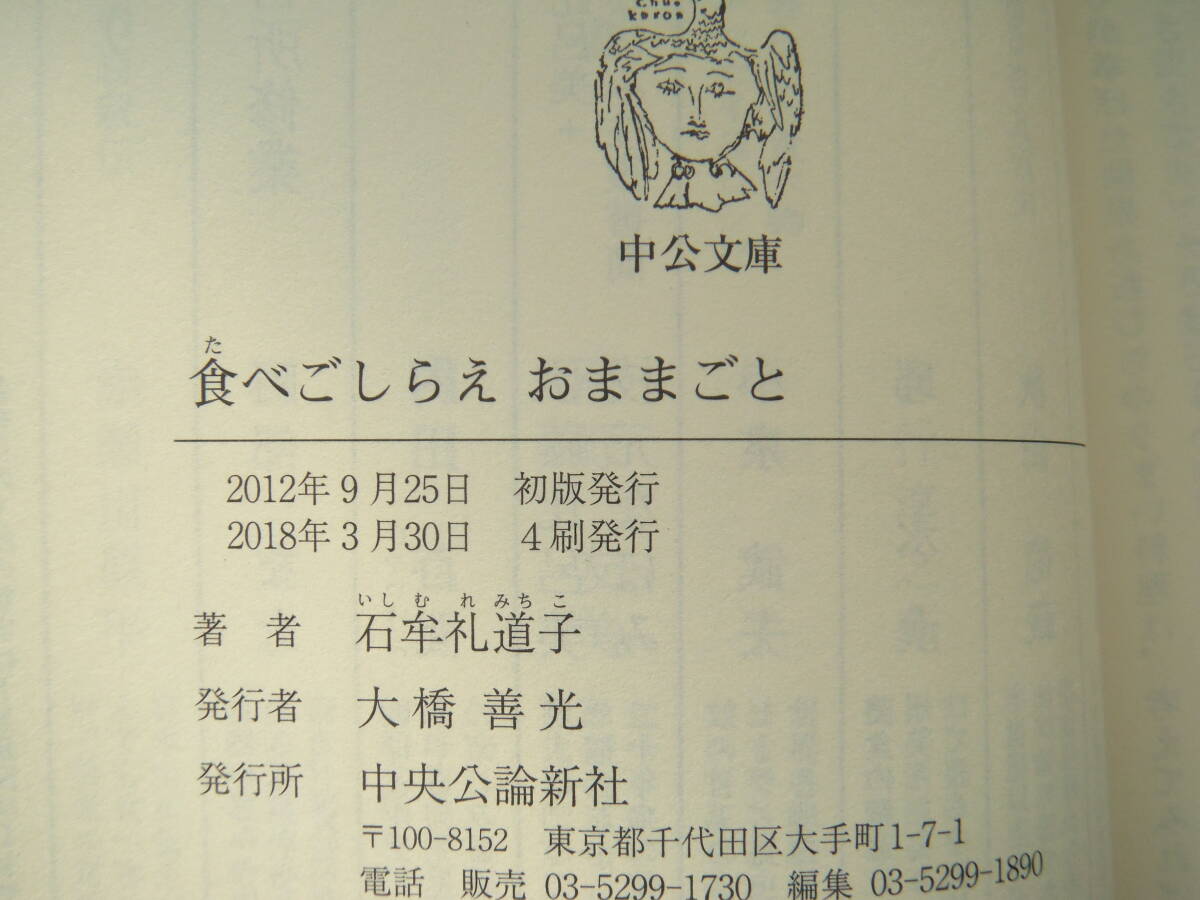 Chuo
koron
中公文庫
た
食べごしらえ おままごと
2012年9月25日 初版発行
2018年3月30日 4刷発行
いし む れ みち こ
著 者 石牟礼道子
発行者 大橋善光
発行所 中央公論新社
〒100-8152 東京都千代田区大手町1-7-1
電話 販売 03-5299-1730 編集 03-5299-1890